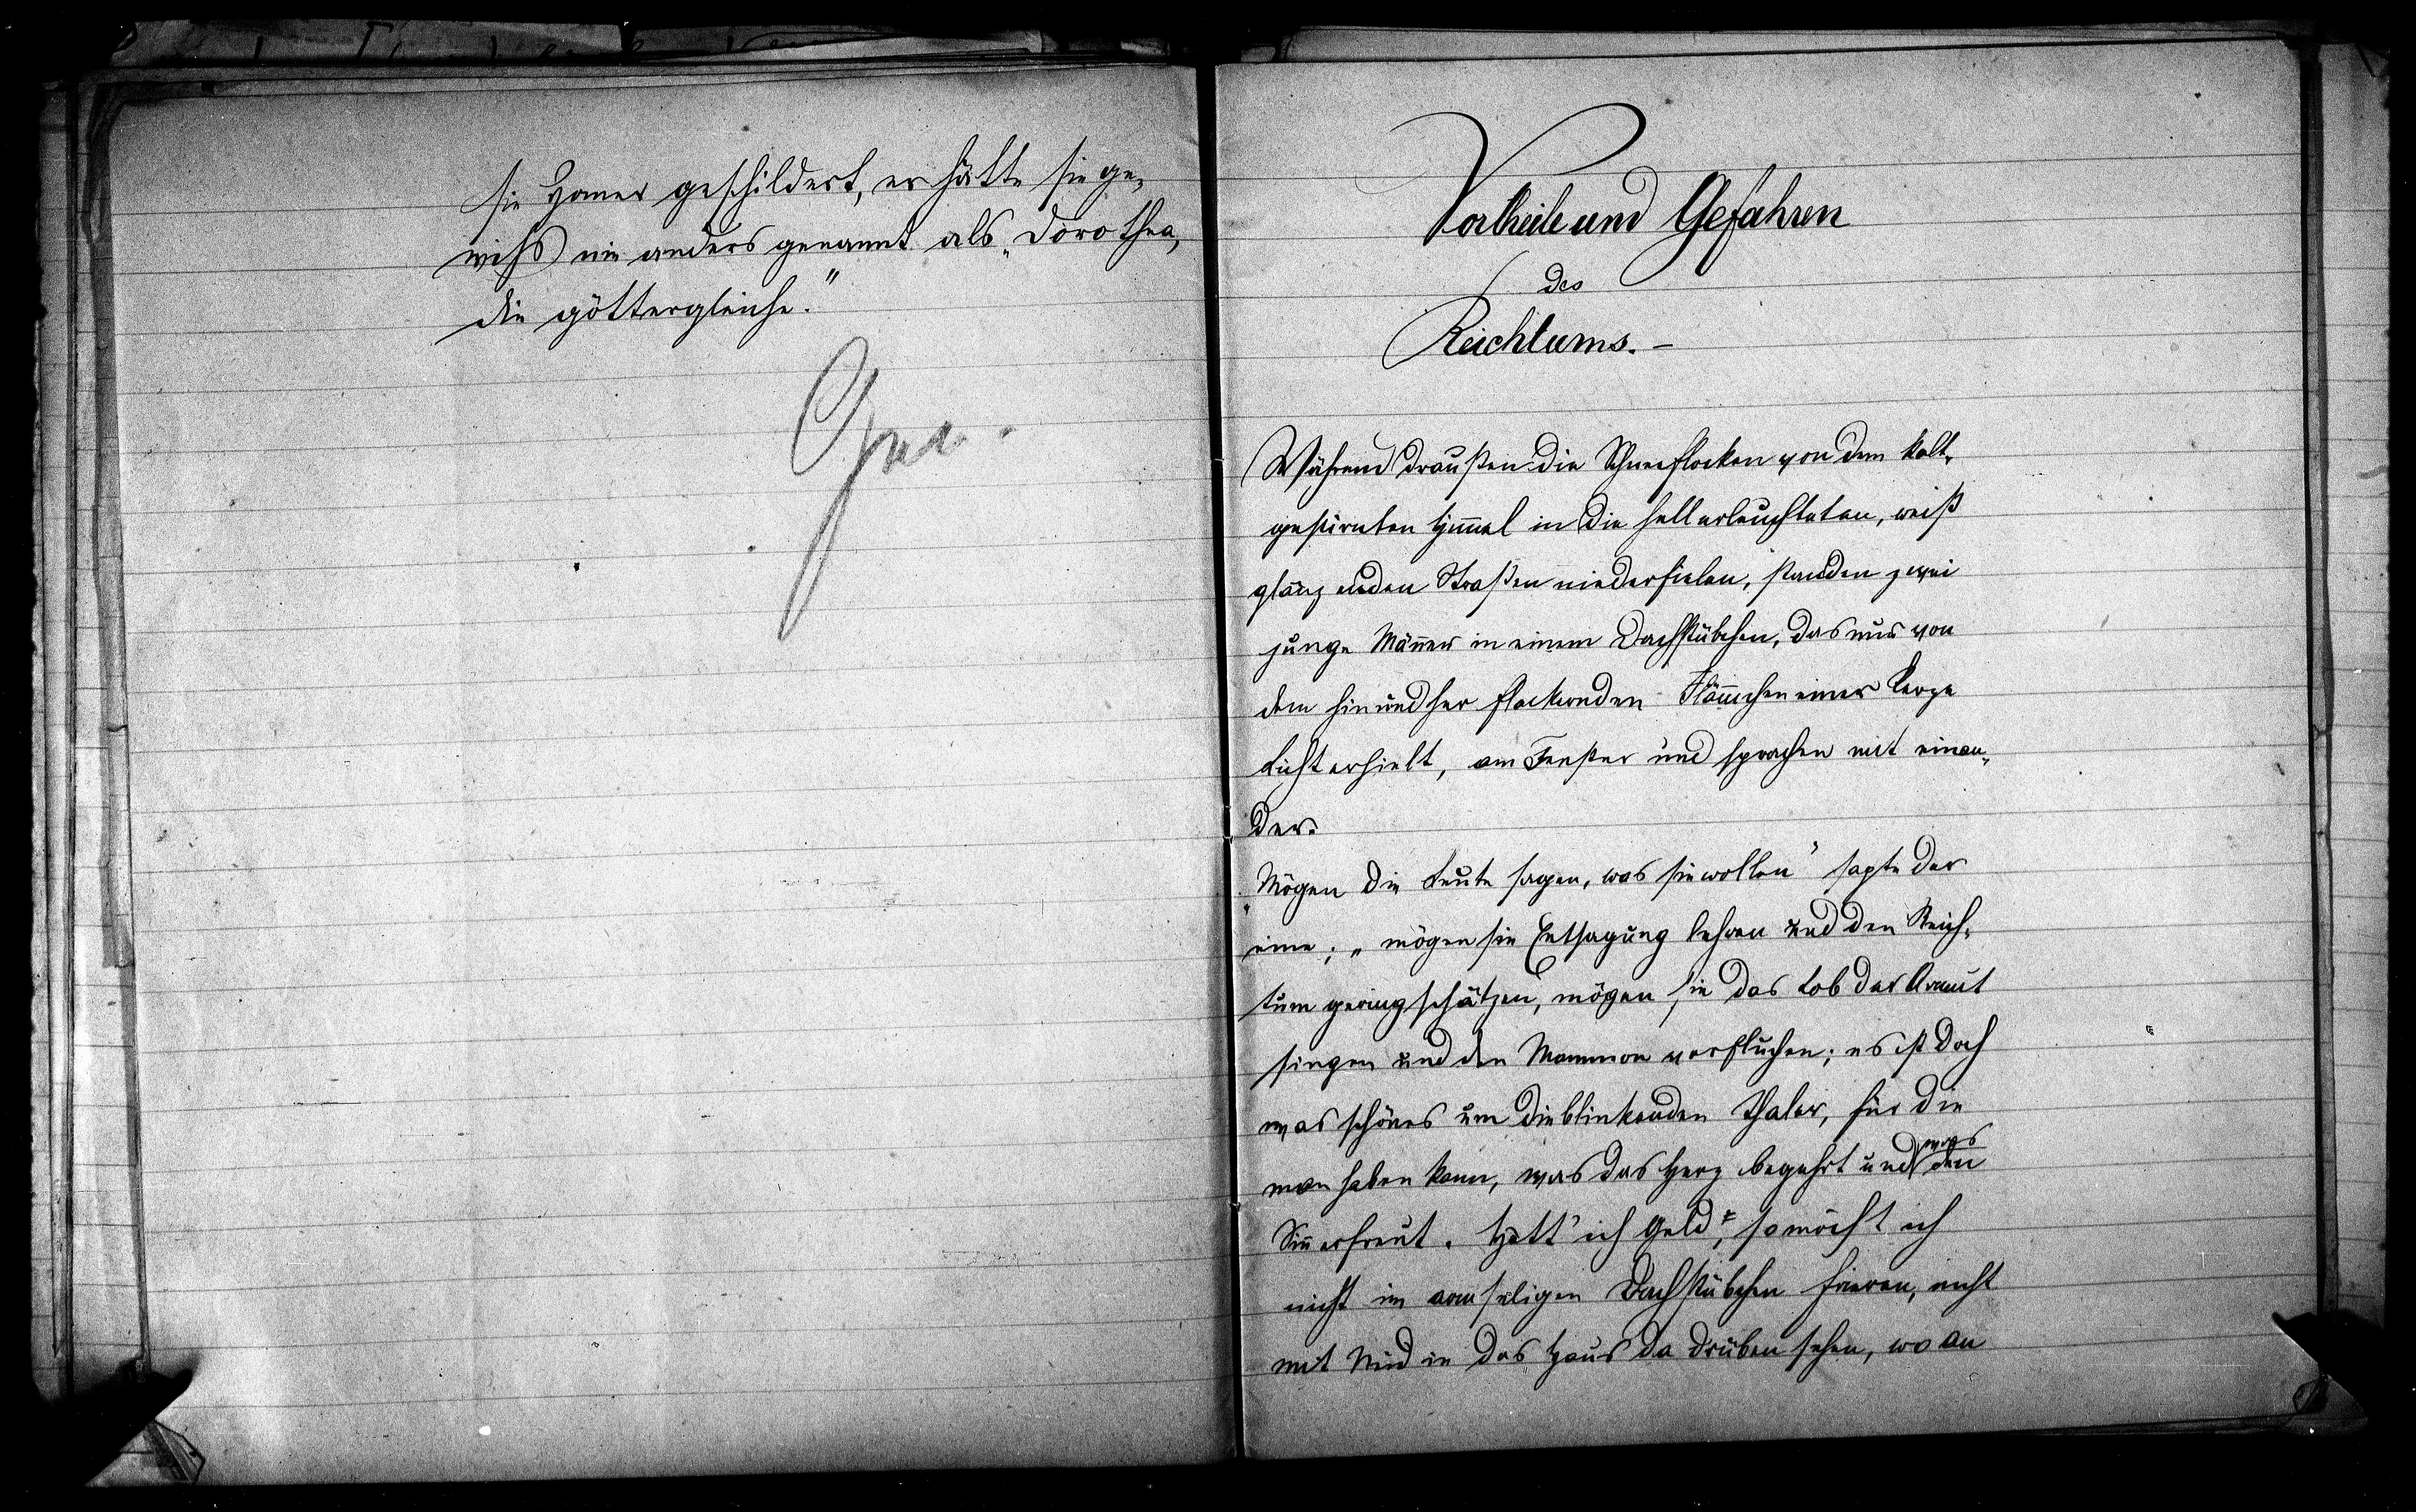 sie Homer geschildert, er hätte sie ge-
wiß nie anders genannt als „Dorothea,
die göttergleiche."
Vortheile und Gefahren
des
Reichtums. -
Während draußen die Schneeflocken von dem kalt-
gestirnten Himmel in die hellerleuchteten, weiß
glänzenden Straßen niederfielen, standen zwei
junge Männer in einem Dachstübchen, das nur von
dem hin und her flackernden Flämmchen einer Kerze
Licht erhielt, am Fenster und sprachen mit einan-
der.
„Mögen die Leute sagen, was sie wollen" sagte der
eine; „mögen sie Entsagung lehren und den Reich-
tum geringschätzen, mögen sie das Lob der Armut
singen und den Mammon verfluchen; es ist doch
was schönes um die blinkenden Thaler, für die
man haben kann, was das Herz begehrt und was den
Sinn erfreut. Hätt' ich Geld, so möcht ich
nicht im armseligen Dachstübchen frieren, nicht
mit Neid in das Haus da drüben sehen, wo an